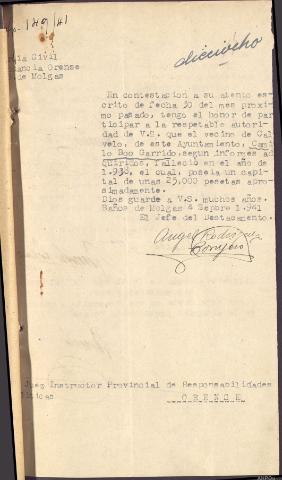 149/41
dieciocho
Civil
ancia Orense
de Molgas
En contestación a su atento es-
crito de fecha 30 del mes proxi-
mo pasado, tengo el honor de par-
ticipar a la respetable autori-
dad de V.S. que el vecino de Cal-
velo, de este Ayuntamiento, Cami-
lo Boo Garrido, según informes ad-
quiridos, fallecio en el año de
1.938, el cual, poseia un capi-
tal de unas 25,000 pesetas apro-
simadamente.
Dios guarde a V.S. muchos años.
Baños de Molgas 4 Sepbre 1.941
El Jefe del Destacamento.
Angel Rodrigue
Juez Instructor Provincial de Responsabilidades
iticas
ORENSE